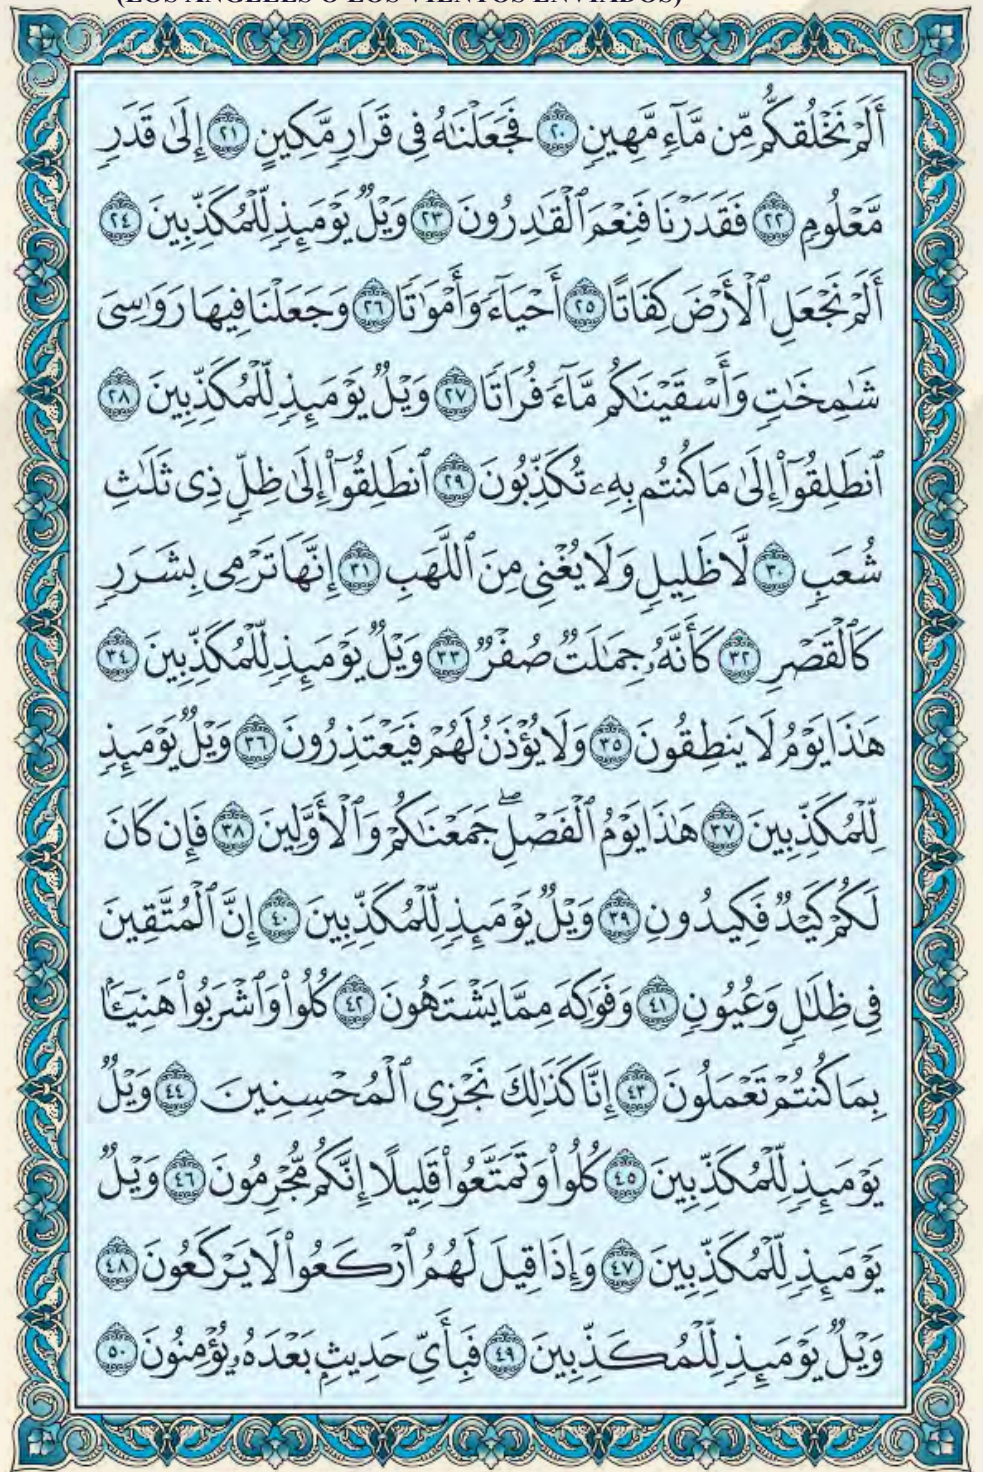 (LOS ÁNGELES O LOS VIENTOS ENVIADOS)
أَلَمْ نَخْلُقكُّم مِّن مَّآءٍ مَّهِينٍ ٢٠ فَجَعَلْنَٰهُ فِى قَرَارٍ مَّكِينٍ ٢١ إِلَىٰ قَدَرٍ
مَّعْلُومٍ ٢٢ فَقَدَرْنَا فَنِعْمَ ٱلْقَٰدِرُونَ ٢٣ وَيْلٌ يَوْمَئِذٍ لِّلْمُكَذِّبِينَ ٢٤
أَلَمْ نَجْعَلِ ٱلْأَرْضَ كِفَاتًا ٢٥ أَحْيَآءً وَأَمْوَٰتًا ٢٦ وَجَعَلْنَا فِيهَا رَوَٰسِىَ
شَٰمِخَٰتٍ وَأَسْقَيْنَٰكُم مَّآءً فُرَاتًا ٢٧ وَيْلٌ يَوْمَئِذٍ لِّلْمُكَذِّبِينَ ٢٨
ٱنطَلِقُوٓا۟ إِلَىٰ مَا كُنتُم بِهِۦ تُكَذِّبُونَ ٢٩ ٱنطَلِقُوٓا۟ إِلَىٰ ظِلٍّ ذِى ثَلَٰثِ
شُعَبٍ ٣٠ لَّا ظَلِيلٍ وَلَا يُغْنِى مِنَ ٱللَّهَبِ ٣١ إِنَّهَا تَرْمِى بِشَرَرٍ
كَٱلْقَصْرِ ٣٢ كَأَنَّهُۥ جِمَٰلَتٌ صُفْرٌ ٣٣ وَيْلٌ يَوْمَئِذٍ لِّلْمُكَذِّبِينَ ٣٤
هَٰذَا يَوْمُ لَا يَنطِقُونَ ٣٥ وَلَا يُؤْذَنُ لَهُمْ فَيَعْتَذِرُونَ ٣٦ وَيْلٌ يَوْمَئِذٍ
لِّلْمُكَذِّبِينَ ٣٧ هَٰذَا يَوْمُ ٱلْفَصْلِ ۖ جَمَعْنَٰكُمْ وَٱلْأَوَّلِينَ ٣٨ فَإِن كَانَ
لَكُمْ كَيْدٌ فَكِيدُونِ ٣٩ وَيْلٌ يَوْمَئِذٍ لِّلْمُكَذِّبِينَ ٤٠ إِنَّ ٱلْمُتَّقِينَ
فِى ظِلَٰلٍ وَعُيُونٍ ٤١ وَفَوَٰكِهَ مِمَّا يَشْتَهُونَ ٤٢ كُلُوا۟ وَٱشْرَبُوا۟ هَنِيٓـًٔۢا
بِمَا كُنتُمْ تَعْمَلُونَ ٤٣ إِنَّا كَذَٰلِكَ نَجْزِى ٱلْمُحْسِنِينَ ٤٤ وَيْلٌ
يَوْمَئِذٍ لِّلْمُكَذِّبِينَ ٤٥ كُلُوا۟ وَتَمَتَّعُوا۟ قَلِيلًا إِنَّكُم مُّجْرِمُونَ ٤٦ وَيْلٌ
يَوْمَئِذٍ لِّلْمُكَذِّبِينَ ٤٧ وَإِذَا قِيلَ لَهُمُ ٱرْكَعُوا۟ لَا يَرْكَعُونَ ٤٨
وَيْلٌ يَوْمَئِذٍ لِّلْمُكَذِّبِينَ ٤٩ فَبِأَىِّ حَدِيثٍۭ بَعْدَهُۥ يُؤْمِنُونَ ٥٠